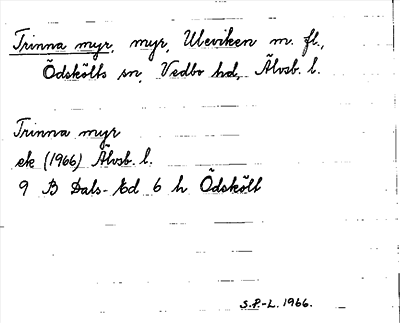 Trinna myr, myr, Uleviken m. fl.,
Ödskölts sn, Vedbo hd, Älvsb. l.
Trinna myr
ek (1966) Älvsb. l.
9 B Dals-Ed 6 h Ödskölt
S.P.-L. 1966.